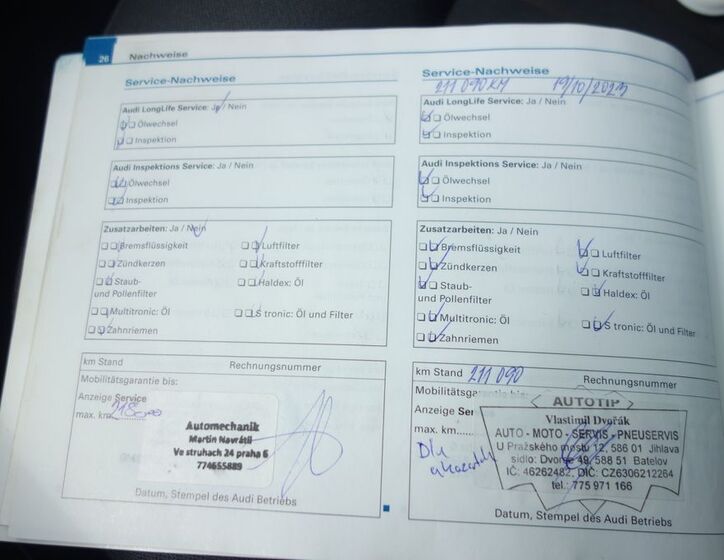 26 Nachweise
Service-Nachweise
Audi LongLife Service: Ja / Nein
Ölwechsel
Inspektion
Audi Inspektions Service: Ja / Nein
Ölwechsel
Inspektion
Zusatzarbeiten: Ja / Nein
Bremsflüssigkeit Luftfilter
Zündkerzen Kraftstofffilter
Staub- Haldex: Öl
und Pollenfilter
Multitronic: Öl S tronic: Öl und Filter
Zahnriemen
km Stand Rechnungsnummer
Mobilitätsgarantie bis:
Anzeige Service
max. km
Automechanik
Martin Navrátil
Ve struchach 24 praha 6
774655889
Datum, Stempel des Audi Betriebs
Service-Nachweise
211 090 KM 19/10/2023
Audi LongLife Service: Ja / Nein
Ölwechsel
Inspektion
Audi Inspektions Service: Ja / Nein
Ölwechsel
Inspektion
Zusatzarbeiten: Ja / Nein
Bremsflüssigkeit Luftfilter
Zündkerzen Kraftstofffilter
Staub- Haldex: Öl
und Pollenfilter
Multitronic: Öl S tronic: Öl und Filter
Zahnriemen
km Stand 211 090 Rechnungsnummer
Mobilitätsgarantie bis:
Anzeige Ser
max. km......
Dle
AUTOTIP
Vlastimil Dvořák
AUTO - MOTO - SERVIS - PNEUSERVIS
U Pražského mostu 12, 586 01 Jihlava
sídlo: Dvorce 49, 588 51 Batelov
IČ: 46262482, DIČ: CZ6306212264
tel.: 775 971 166
Datum, Stempel des Audi Betriebs